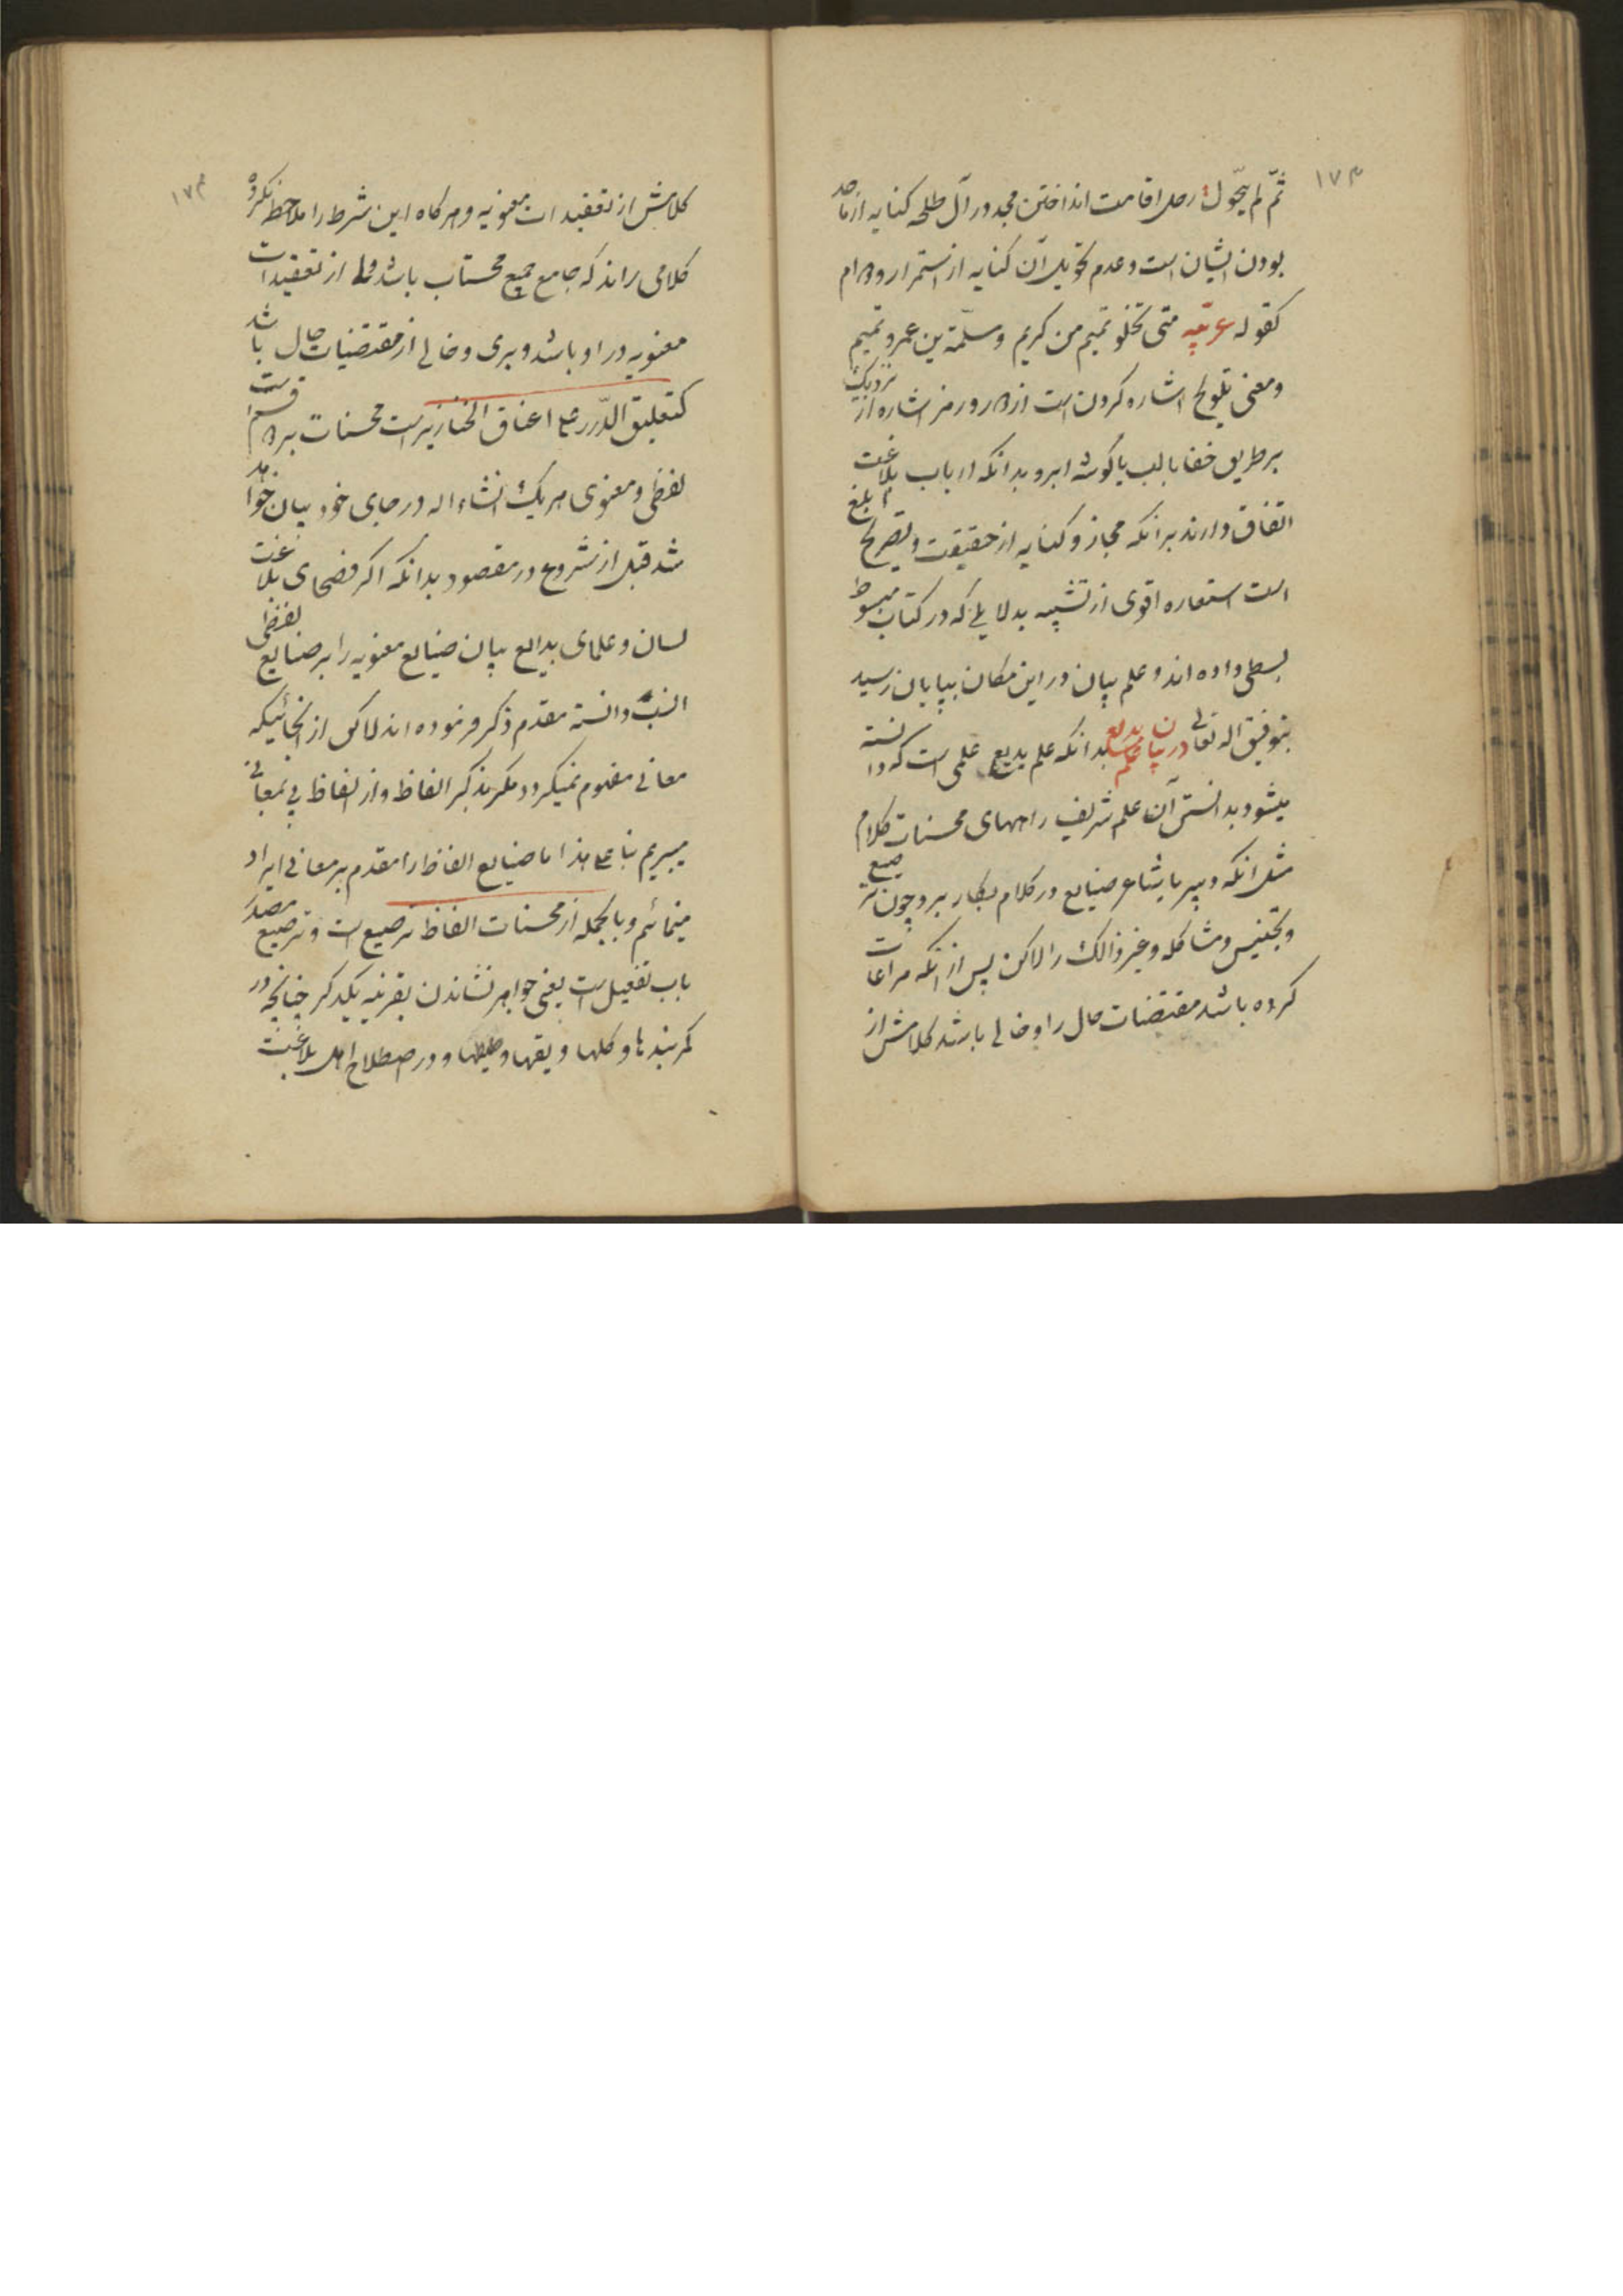 ۱۷۳
ثمّ لم یتحوّل رحل اقامت انداختن مجد در آل طلحه کنایه از ماجد
بودن ایشان است و عدم تحویل آن کنایه از استمرار و دوام
کقوله عربیّه متی تخلو تمیم من کریم و مسلمة بن عمرو تمیم
و معنی تلویح اشاره کردن است از دور و رمز اشاره از نزدیک
بر طریق خفا با لب یا کوشه ابرو بدانکه ارباب بلاغت
اتفاق دارند بر انکه مجاز و کنایه از حقیقت و تصریح ابلغ
است استعاره اقوی از تشبیه بدلایلی که در کتاب مبسوط
بسطی داده اند و علم بیان در این مکان بپایان رسید
بتوفیق اله تعالی در بیان علم بدیع بدانکه علم بدیع علمی است که دانسته
میشود بدانستن آن علم شریف راههای محسنات کلام
مثل انکه دبیر یا شاعر صنایع در کلام بکار برد چون ترصیع
و تجنیس و مشاکله و غیر ذالک را لاکن پس از انکه مراعات
کرده باشد مقتضیات حال را و خالی باشد کلامش از
۱۷۴
کلامش از تعقیدات معنویه و هرکاه این شرط را ملاحظه نکرده
کلامی راند که جامع جمیع محسنات باشد و از تعقیدات
معنویه در او باشد و بری و خالی از مقتضیات حال باشد
کتعلیق الدّرر علی اعناق الخنازیر است محسنات بر دو قسم است
لفظی و معنوی هر یک انشاء اله در جای خود بیان خواهد
شد قبل از شروع در مقصود بدانکه اکر فصحای بلاغت
لسان و علمای بدایع بیان صنایع معنویه را بر صنایع لفظی
انسب دانسته مقدم ذکر فرموده اند لاکن از انجائیکه
معانی مفهوم نمیکردد مکر بذکر الفاظ و از الفاظ پی بمعانی
میبریم بنا علی هذا ما صنایع الفاظ را مقدم بر معانی ایراد
مینمائیم و بالجمله از محسنات الفاظ ترصیع است و ترصیع مصدر
باب تفعیل است یعنی جواهر نشاندن بقرینه یکدکر چنانچه در
کمربندها و کلها و یقها و در اصطلاح اهل بلاغت